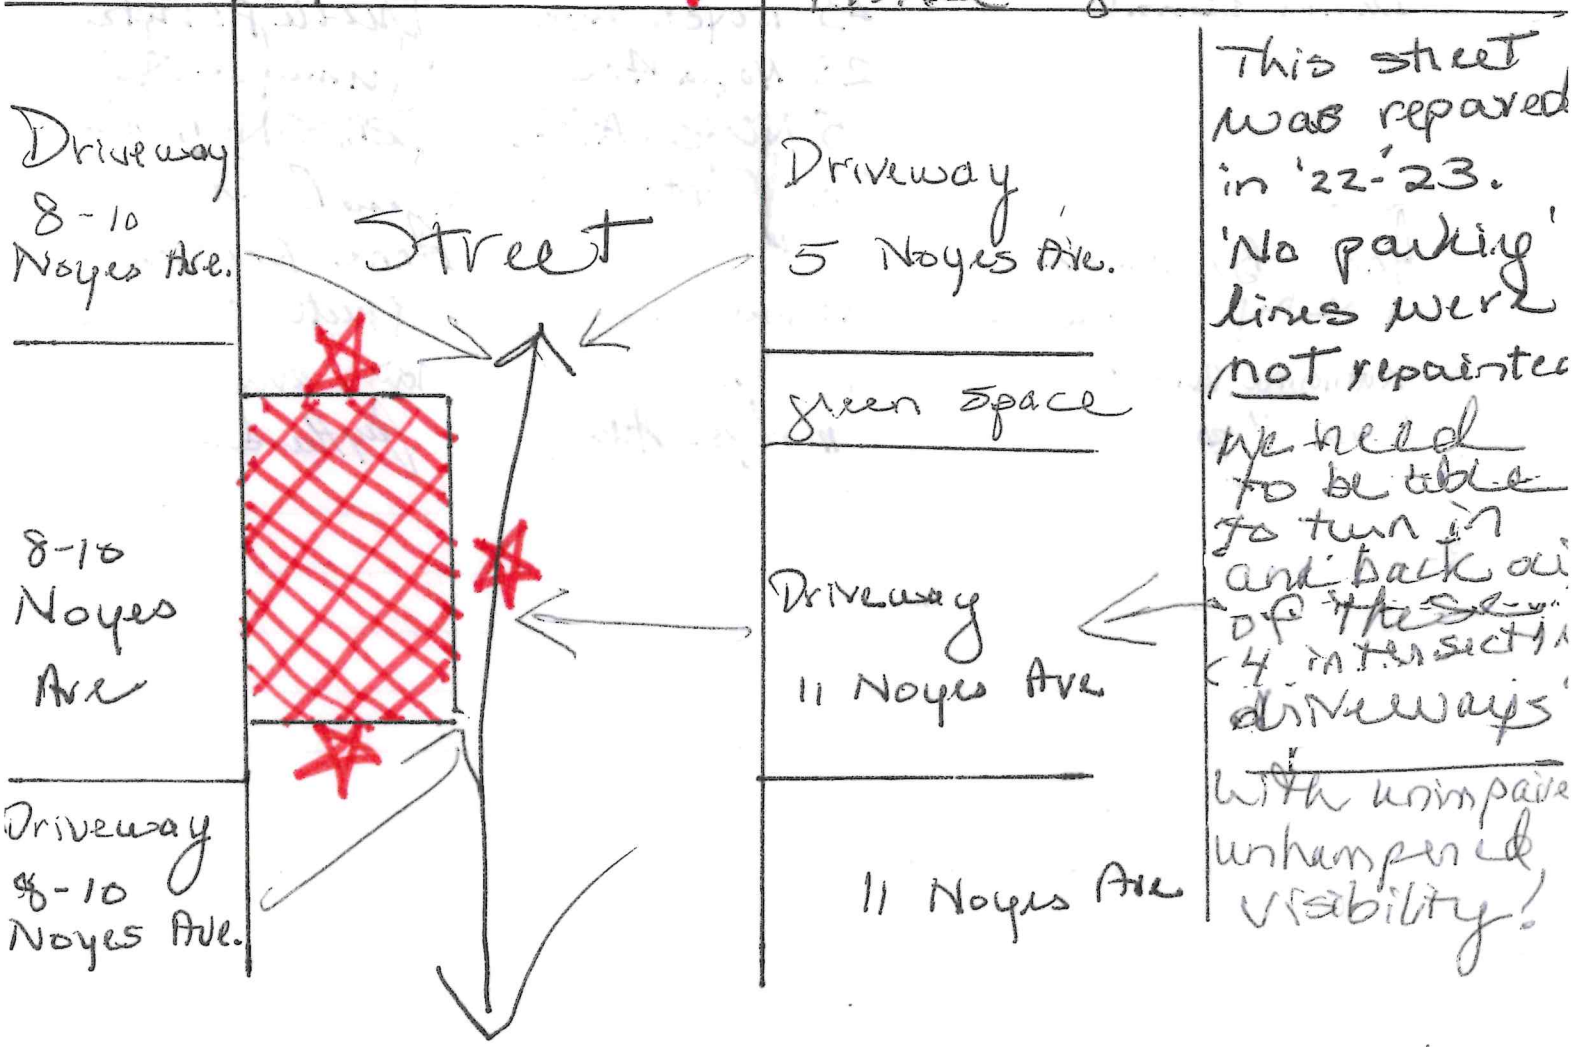 Driveway
8-10
Noyes Ave.
8-10
Noyes
Ave
Driveway
8-10
Noyes Ave.
Street
Driveway
5 Noyes Ave.
green space
Driveway
11 Noyes Ave
11 Noyes Ave
This street
was repaved
in '22-'23.
'No parking'
lines were
not repainted
we need
to be able
to turn in
and back ou
of these
4 intersectin
driveways'
with unimpaire
unhampered
visibility!